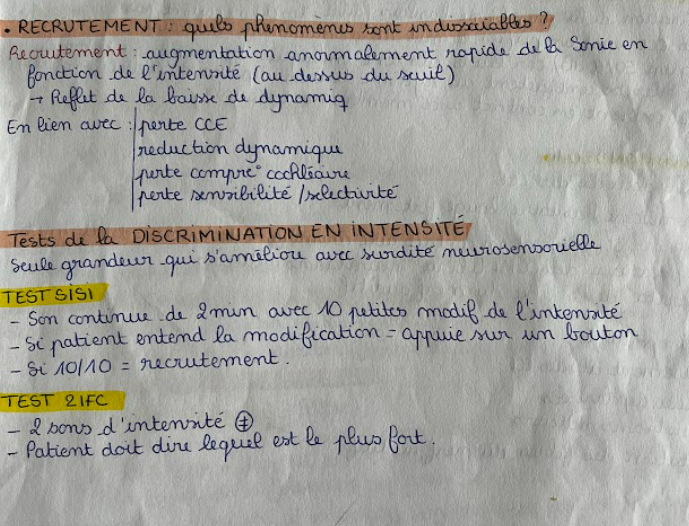 • RECRUTEMENT : quels phenomènes sont indissociables ?
Recrutement : augmentation anormalement rapide de la Sonie en
fonction de l'intensité (au dessus du seuil)
→ Reflet de la baisse de dynamiq
En lien avec : perte CCE
reduction dynamique
perte compre° cochléaire
perte sensibilité / selectivité
Tests de la DISCRIMINATION EN INTENSITÉ
Seule grandeur qui s'améliore avec surdité neurosensorielle
TEST SISI
- Son continue de 2min avec 10 petites modif de l'intensité
- Si patient entend la modification = appuie sur un bouton
- Si 10/10 = recrutement.
TEST 2IFC
- 2 sons d'intensité ≠
- Patient doit dire lequel est le plus fort.